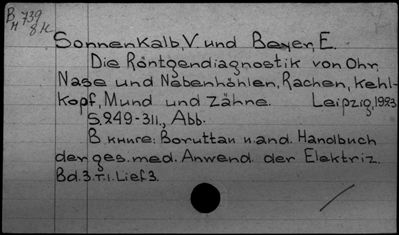 B 739
H 8к
Sonnenkalb, V. und Beyer, E.
Die Röntgendiagnostik von Ohr,
Nase und Nebenhöhlen, Rachen, Kehl-
kopf, Mund und Zähne. Leipzig, 1923
S. 249-311., Abb.
В книге: Boruttau u. and. Handbuch
der ges. med. Anwend. der Elektriz.
Bd. 3. T. 1. Lief 3.